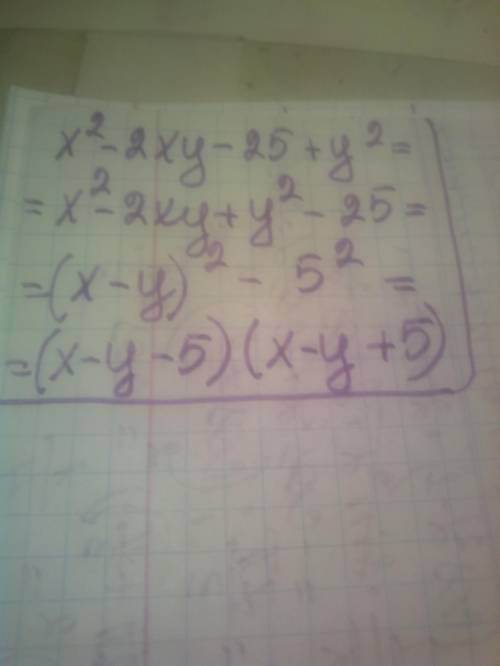 x² - 2xy - 25 + y² =
= x² - 2xy + y² - 25 =
= (x - y)² - 5² =
= (x - y - 5) (x - y + 5)